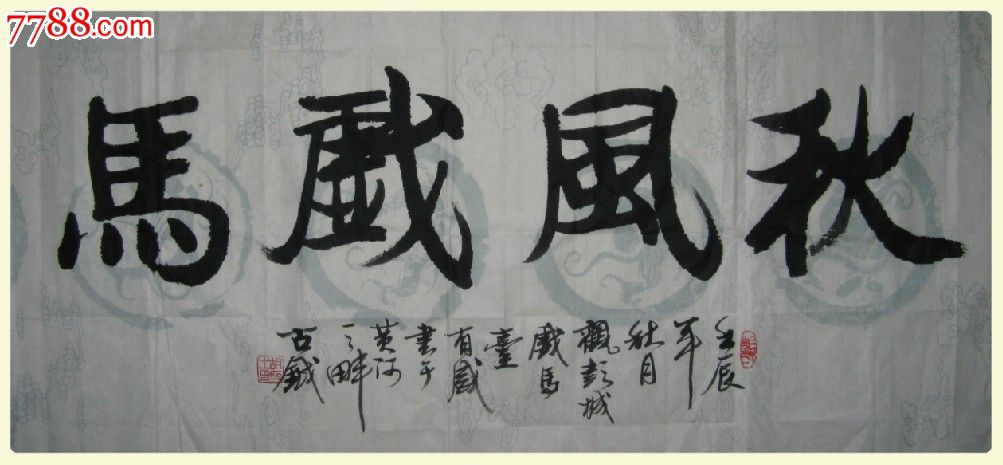 7788.com
秋風戲馬
壬辰
年
秋月
觀彭城
戲馬
臺
有感
書于
黄河
之畔
古